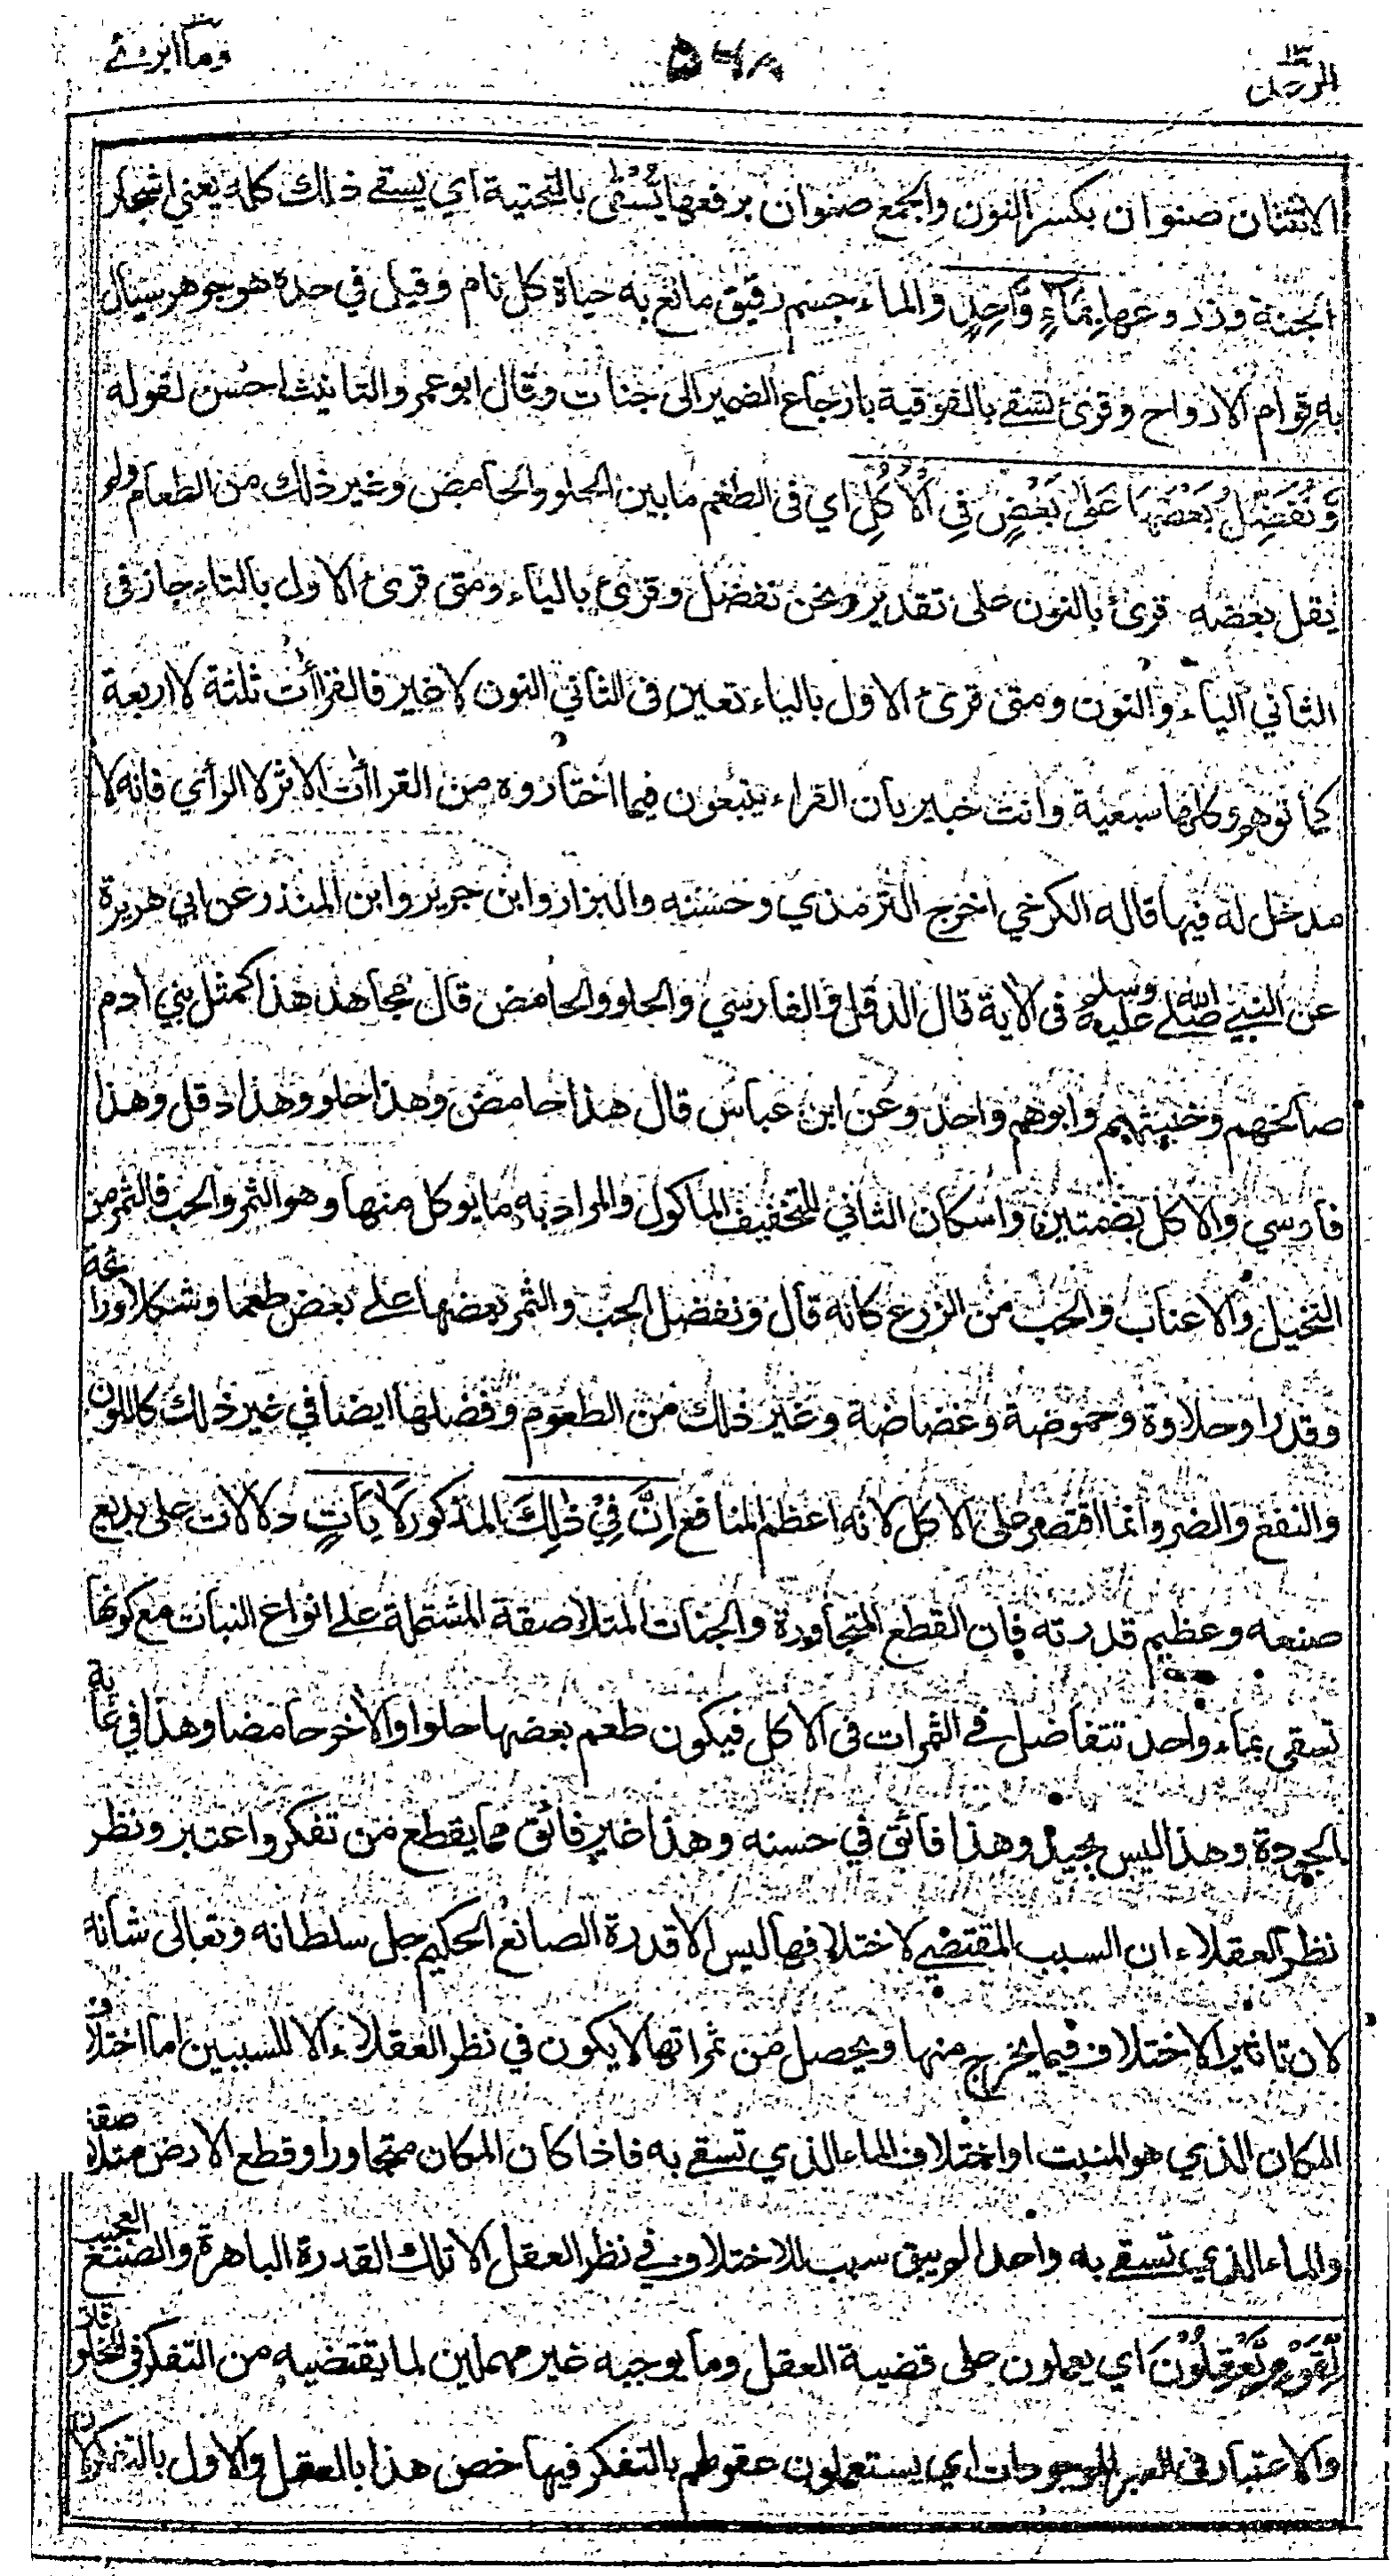 الرعد ١٣
٥٦٨
وما ابرئ
الاثنان صنوان بكسر النون والجمع صنوان برفعها يُسْقٰى بالتحتية اي يسقے ذلك كله يعني اشجار
الجنة وزروعها بِمَآءٍ وَّاحِدٍ والماء جسم رقيق مائع به حياة كل نام وقيل في حده هو جوهر سيال
به قوام الارواح وقرئ تسقے بالفوقية بارجاع الضمير الى جنات وقال ابو عمرو والتانيث احسن لقوله
وَّنُفَضِّلُ بَعْضَهَا عَلٰى بَعْضٍ فِي الْاُكُلِ اي فى الطعم ما بين الحلو والحامض وغير ذلك من الطعام ولو
يقل بعضه قرئ بالنون على تقدير ونحن نفضل وقرئ بالياء ومتى قرئ الاول بالتاء جاز فى
الثاني الياء والنون ومتى قرئ الاول بالياء تعين فى الثاني النون لا غير فالقراأت ثلثة لا اربعة
كما توهم وكلها سبعية وانت خبير بان القراء يتبعون فيما اختاروه من القراأت الاثر لا الرأي فانه لا
مدخل له فيها قاله الكرخي اخرج الترمذي وحسنه والبزار وابن جرير وابن المنذر عن ابي هريرة
عن النبي صلے الله عليه وسلم فى الاية قال الدقل والفارسي والحلو والحامض قال مجاهد هذا كمثل بني ادم
صالحهم وخبيثهم وابوهم واحد وعن ابن عباس قال هذا حامض وهذا حلو وهذا دقل وهذا
فارسي والاكل بضمتين واسكان الثاني للتخفيف الماكول والمراد به ما يوكل منها وهو الثمر والحب فالثمر من
النخيل والاعناب والحب من الزرع كانه قال ونفضل الحب والثمر بعضها علے بعض طعما وشكلا ورائحة
وقدرا وحلاوة وحموضة وغضاضة وغير ذلك من الطعوم وفضلها ايضا في غير ذلك كاللون
والنفع والضر وانما اقتصر على الاكل لانه اعظم المنافع اِنَّ فِيْ ذٰلِكَ المذكور لَاٰيَاتٍ دلالات على بديع
صنعه وعظيم قدرته فان القطع المتجاورة والجنات المتلاصقة المشتملة علے انواع النبات مع كونها
تسقى بماء واحد تتفاضل في الثمرات فى الاكل فيكون طعم بعضها حلوا والاخر حامضا وهذا في غاية
الجودة وهذا ليس بجيد وهذا فائق في حسنه وهذا غير فائق مما يقطع من تفكر واعتبر ونظر
نظر العقلاء ان السبب المقتضے لاختلافها ليس الا قدرة الصانع الحكيم جل سلطانه وتعالى شانه
لان تاثير الاختلاف فيما يخرج منها ويحصل من ثمراتها لا يكون في نظر العقلاء الا للسببين اما اختلاف
المكان الذي هو المنبت او اختلاف الماء الذي تسقے به فاذا كان المكان متجاورا وقطع الارض متلاصقة
والماء الذي تسقے به واحد الم يبق سبب للاختلاف في نظر العقل الا تلك القدرة الباهرة والصنع العجيب
لِّقَوْمٍ يَّعْقِلُوْنَ اي يعملون على قضية العقل وما يوجبه غير مهملين لما يقتضيه من التفكر فى المخلوقات
والاعتبار فى العبر الموجودات اي يستعملون عقولهم بالتفكر فيها خص هذا بالعقل والاول بالتفكر لان